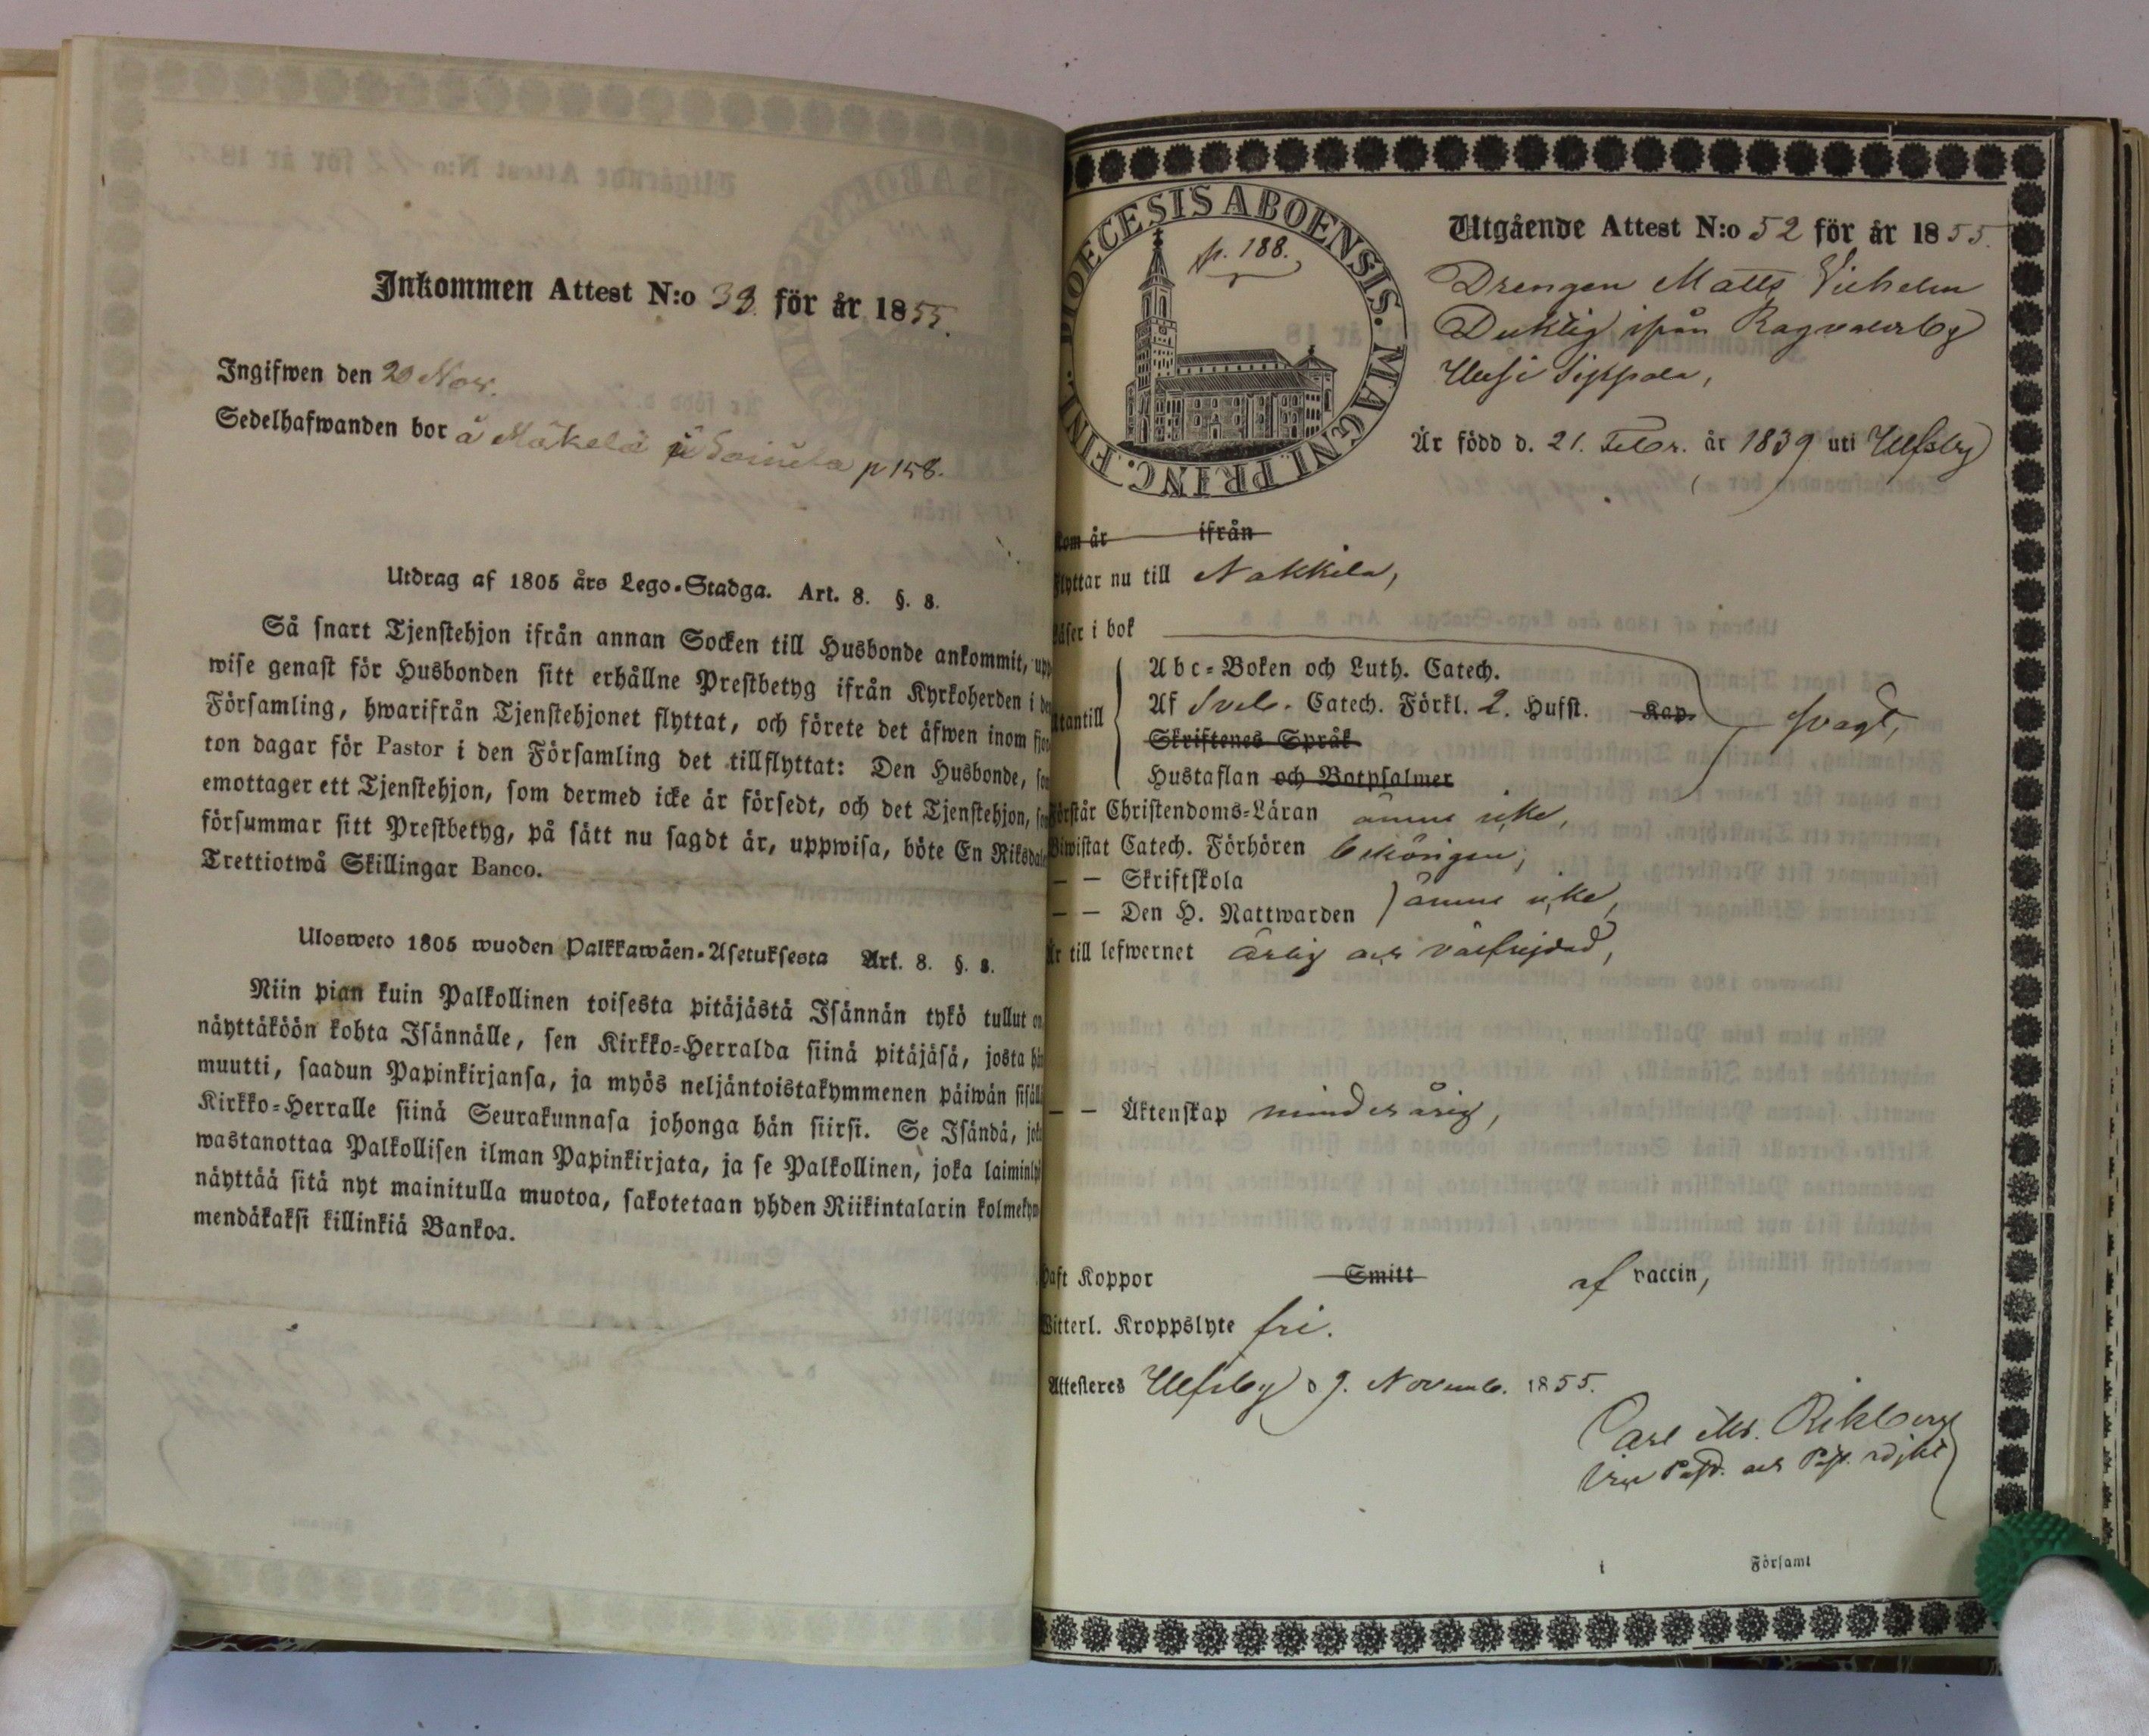 Inkommen Attest N:o 38 för år 1855.
Ingifwen den 20 Nov.
Sedelhafwanden bor å Mäkelä p 158.
Utdrag af 1805 års Lego-Stadga. Art. 8. §. 8.
Så snart Tjenstehjon ifrån annan Socken till Husbonde ankommit, upp
wise genast för Husbonden sitt erhållne Prestbetyg ifrån Kyrkoherden i den
Församling, hwarifrån Tjenstehjonet flyttat, och förete det äfwen inom fjor
ton dagar för Pastor i den Församling det tillflyttat: Den Husbonde, som
emottager ett Tjenstehjon, som dermed icke är försedt, och det Tjenstehjon, som
försummar sitt Prestbetyg, på sätt nu sagdt är, uppwisa, böte En Riksdale
Trettiotwå Skillingar Banco.
Ulosweto 1805 wuoden Palkkawäen-Asetuksesta Art. 8. §. 8.
Niin pian kuin Palkollinen toisesta pitäjästä Isännän tykö tullut on
näyttäköön kohta Isännälle, sen Kirkko-Herralda siinä pitäjäsä, josta hän
muutti, saadun Papinkirjansa, ja myös neljäntoistakymmenen päiwän sisällä
Kirkko-Herralle siinä Seurakunnasa johonga hän siirsi. Se Isändä, joka
wastanottaa Palkollisen ilman Papinkirjata, ja se Palkollinen, joka laiminly
näyttää sitä nyt mainitulla muotoa, sakotetaan yhden Riikintalarin kolmekym
mendäkaksi killinkiä Bankoa.
DIOECESIS ABOENSIS. MAGNI PRINC. FINL.
p. 188.
Utgående Attest N:o 52 för år 1855.
Drengen Matts Vilhelm
Duktig ifrån Ragvaldsby
Ulfsi Sippola,
Är född d. 21. Febr. år 1839 uti Ulfsby
kom år ifrån
flyttar nu till Nakkila,
läser i bok
Abc-Boken och Luth. Catech.
utantill Af Sveb. Catech. Förkl. 2. Hufst. Kap. svagt,
Skriftenes Språk
Hustaflan och Botpsalmer
Förstår Christendoms-Läran ännu icke,
Biwistat Catech. Förhören behörigen,
— — Skriftskola
— — Den H. Nattwarden ännu icke,
Är till lefwernet ärlig och välfrejdad,
— — Äktenskap minderårig,
Haft Koppor Smitt af vaccin,
Witterl. Kroppslyte fri.
Attesteres Ulfsby d 9. Novemb. 1855.
Carl M. Rikberg
Vice Past. och Past. adjkt
i Församl